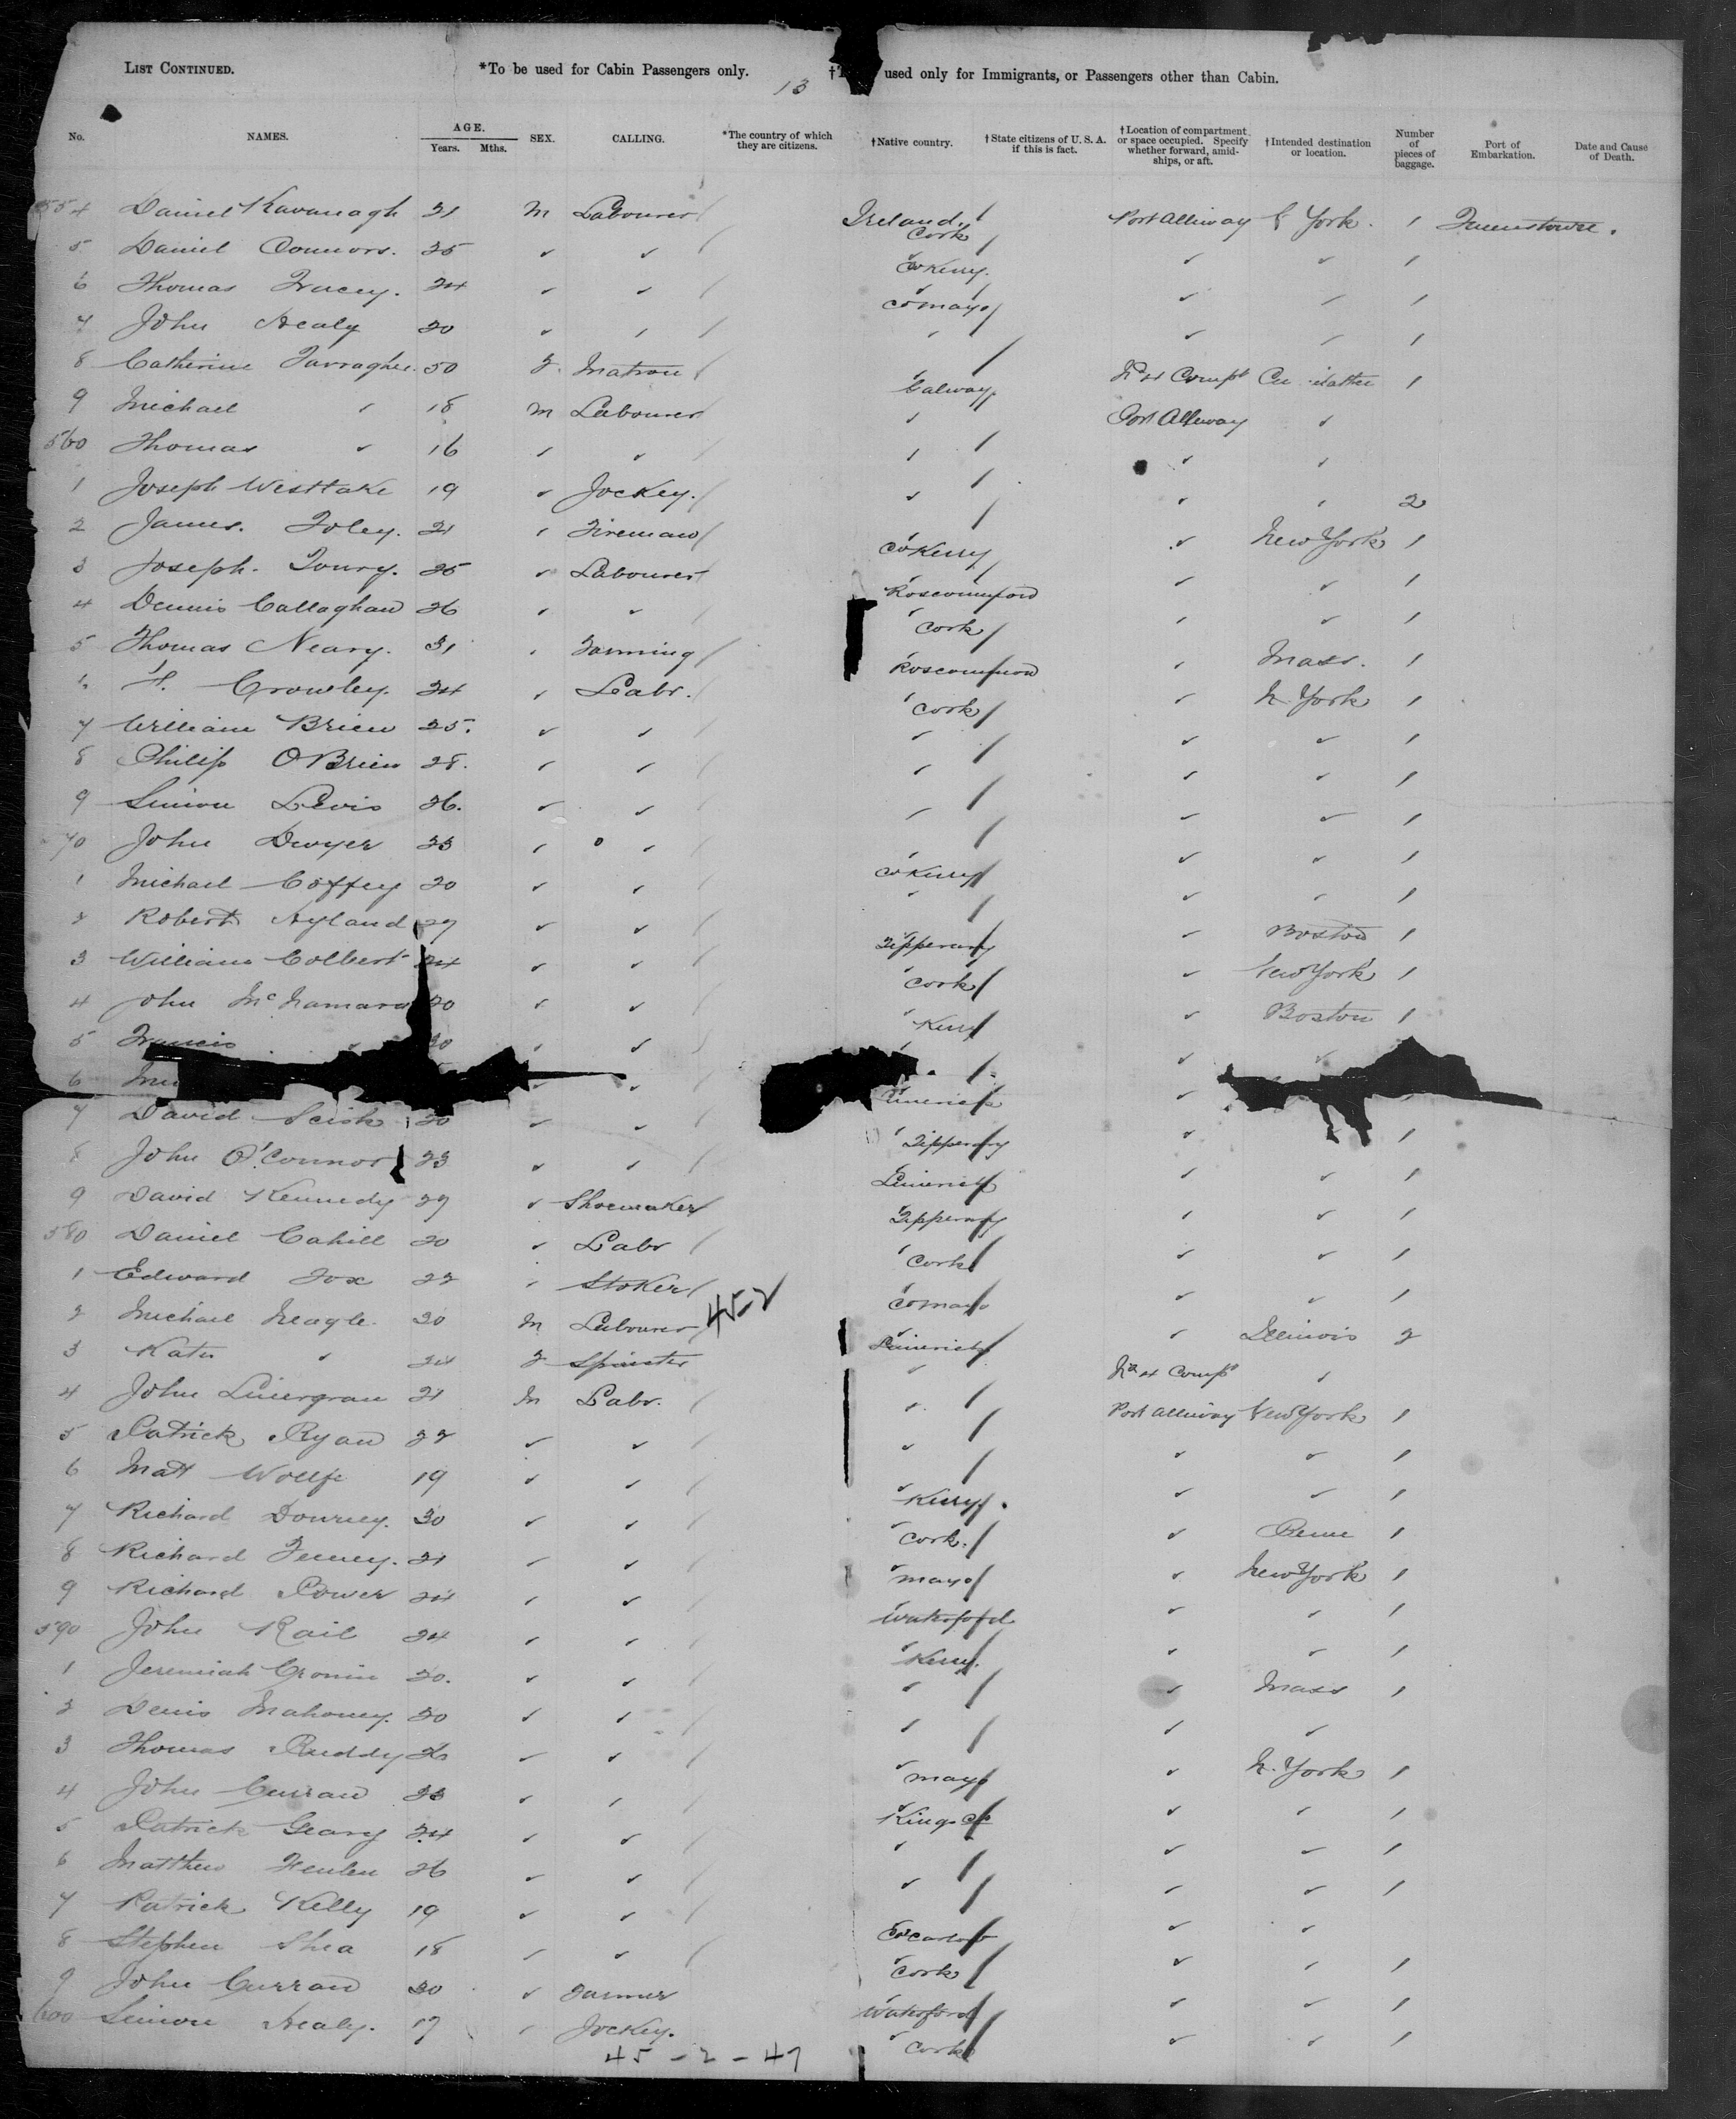 LIST CONTINUED. *To be used for Cabin Passengers only. 13 used only for Immigrants, or Passengers other than Cabin.
No. NAMES. AGE. Years. Mths. SEX. CALLING. *The country of which they are citizens. †Native country. †State citizens of U. S. A. if this is fact. †Location of compartment or space occupied. Specify whether forward, amid-ships, or aft. †Intended destination or location. Number of pieces of baggage. Port of Embarkation. Date and Cause of Death.
554 Daniel Kavanagh 21 M Labourer Ireland, Cork Port Alleway N York. 1 Queenstown.
5 Daniel Connors. 25 Co Kerry. 1
6 Thomas Tracey. 24 Co Mayo 1
7 John Healy 20 1
8 Catherine 50 F Matron Galway No 4 Compt 1
9 Michael 18 M Labourer Port Alleway
560 Thomas 16
1 Joseph Westlake 19 Jockey. 2
2 James. Foley. 21 Fireman Co Kerry New York 1
3 Joseph. 25 Labourer Roscommon 1
4 Dennis Callaghan 26 Cork 1
5 Thomas Neary. 31 Farming Roscommon Mass. 1
6 Crowley. 24 Labr. Cork N. York 1
7 William Brien 25. 1
8 Philip O Brien 28. 1
9 Simon Levis 26. 1
70 John Dwyer 23 1
1 Michael Coffey 20 Co Kerry 1
2 Robert Hyland 27 Tipperary Boston 1
3 William Colbert 24 Cork New York 1
4 John McNamara 20 Kerry Boston 1
5 Francis
6
7 David 20 Limerick
8 John O'Connor 23 Tipperary 1
9 David Kennedy 27 Shoemaker Limerick 1
580 Daniel Cahill 20 Labr Tipperary 1
1 Edward Fox 22 Stoker Cork 1
2 Michael Neagle. 20 M Labourer 45-2 Co Mayo 1
3 Kate 24 F Spinster Limerick Illinois 2
4 John 21 M Labr. No 4 Compt
5 Patrick Ryan 22 Port Alleway New York 1
6 Matt Wolfe 19 1
7 Richard Downey. 30 Kerry. 1
8 Richard 21 Cork. Penn 1
9 Richard Power 24 Mayo New York 1
590 John Rail 24 Waterford 1
1 Jeremiah Cronin 20. Kerry. 1
2 Denis Mahoney. 20 Mass 1
3 Thomas Ruddy
4 John Curran 23 Mayo N. York 1
5 Patrick Geary 24 Kings Co 1
6 Matthew 26 1
7 Patrick Kelly 19 1
8 Stephen Shea 18 Co Carlow
9 John Curran 30 Farmer Cork 1
600 Simon Healy. 17 Jockey. Waterford 1
45-2-47 Cork 1